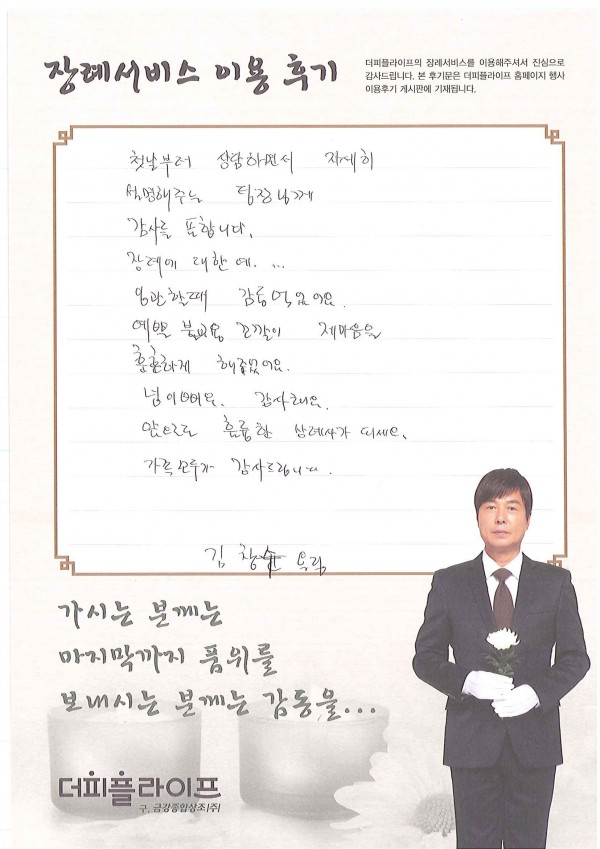 장례서비스 이용 후기
더피플라이프의 장례서비스를 이용해주셔서 진심으로
감사드립니다. 본 후기문은 더피플라이프 홈페이지 행사
이용후기 게시판에 기재됩니다.
첫날부터 상담하면서 자세히
설명해주는 팀장님께
감사를 표합니다.
장례에 대한 예. ...
입관할때 감동먹었어요.
예쁜 꽃깔이 제마음을
훈훈하게 해주었어요.
넘 이뻐요. 감사해요.
앞으로 훌륭한 장례사가 되세요.
가족모두가 감사드립니다.
김창
가시는 분께는
마지막까지 품위를
보내시는 분께는 감동을...
더피플라이프
구. 금강종합상조(주)